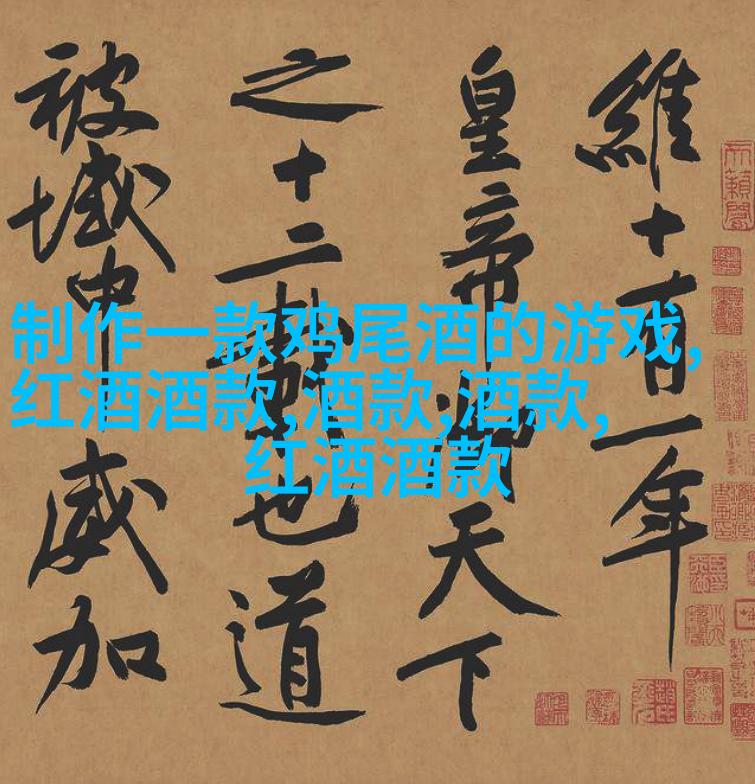 維十有一年
皇帝御天下
之十二載也道
被域中威加
制作一款鸡尾酒的游戏,
红酒酒款,酒款,酒款,
红酒酒款